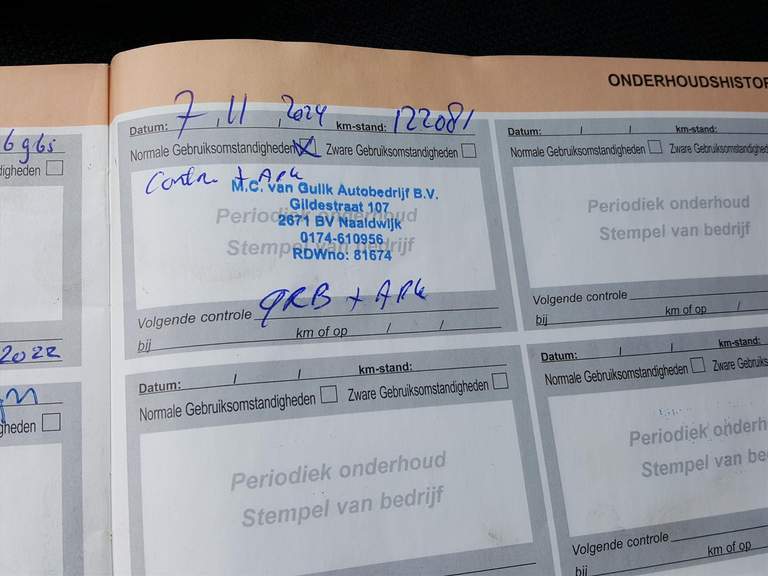 ONDERHOUDSHISTOR
6965
gheden
2022
gheden
Datum: 7, 11, 2024 km-stand: 122081
Normale Gebruiksomstandigheden Zware Gebruiksomstandigheden
+ APK
M.C. van Gulik Autobedrijf B.V.
Gildestraat 107
2671 BV Naaldwijk
0174-610956
RDWno: 81674
Periodiek onderhoud
Stempel van bedrijf
Volgende controle GRB + APK
bij km of op / /
Datum: / / km-stand:
Normale Gebruiksomstandigheden Zware Gebruiksomstandigheden
Periodiek onderhoud
Stempel van bedrijf
Datum: / / km-stand:
Normale Gebruiksomstandigheden Zware Gebruiks
Periodiek onderhoud
Stempel van bedrijf
Volgende controle
bij km of op /
Datum: / / km-stand:
Normale Gebruiksomstandigheden Zware Gebruiks
Periodiek onderh
Stempel van be
Volgende controle
bij km of op /